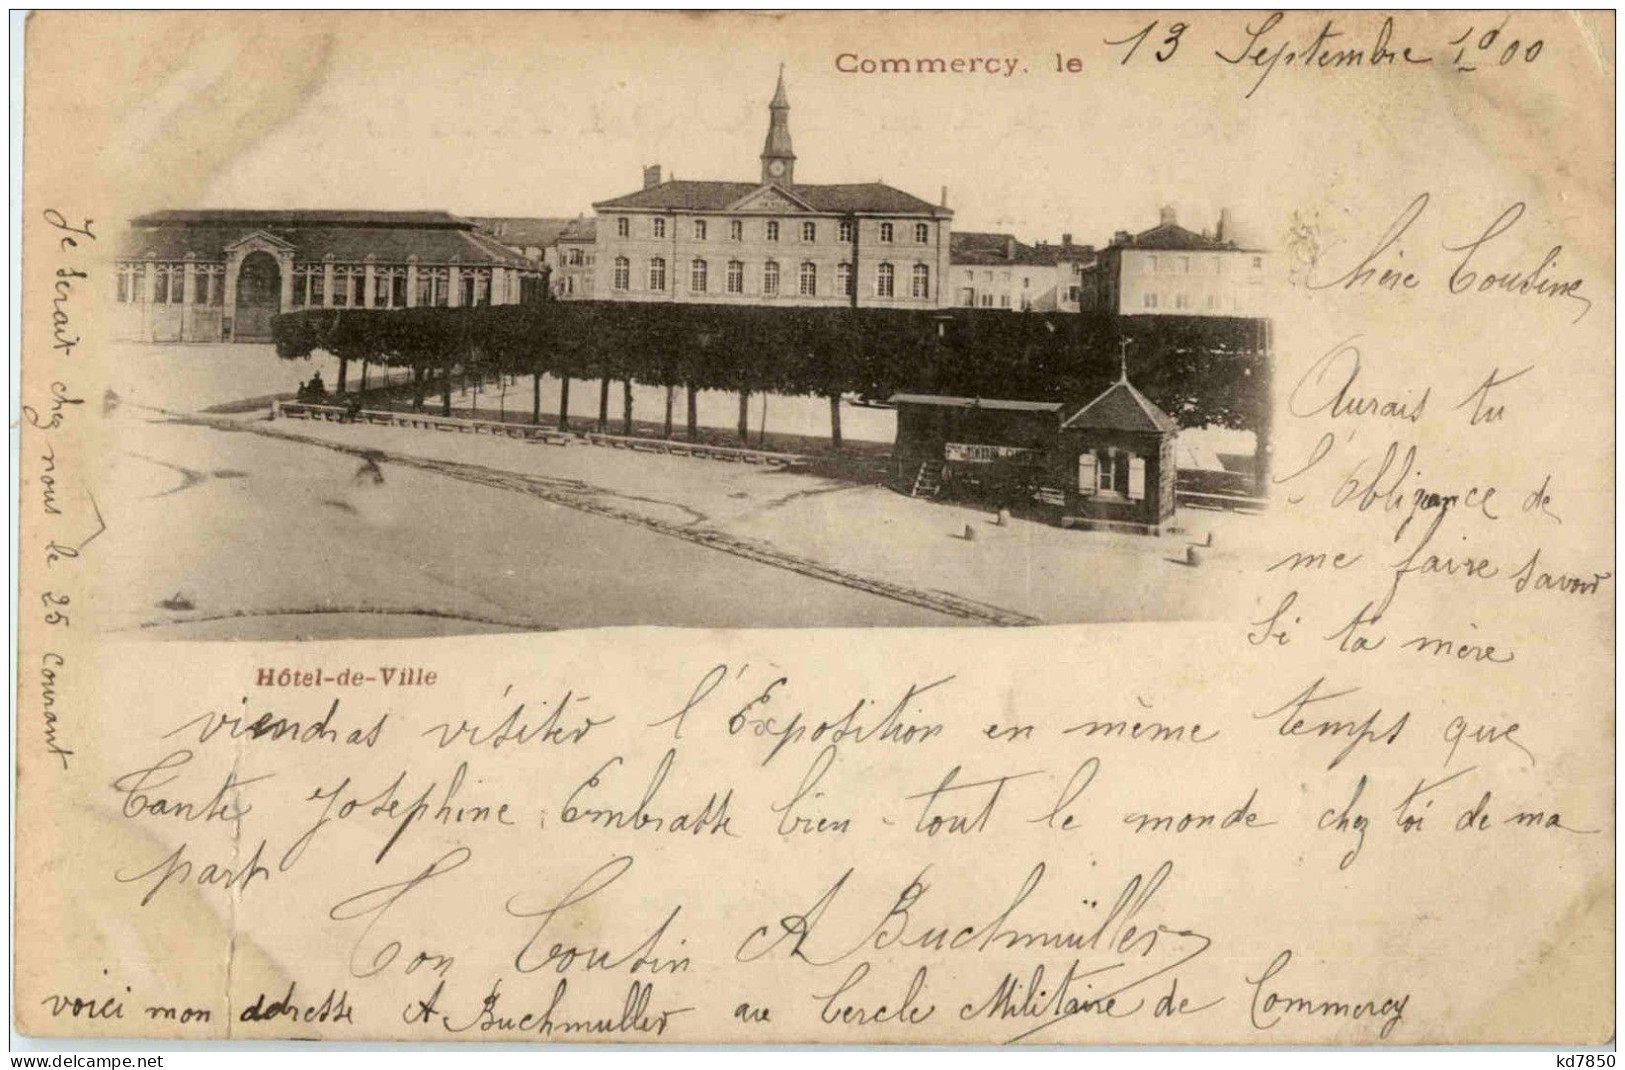 Commercy, le 13 Septembre 1900
Chère Cousine
Aurais tu
l'obligeance de
me faire savoir
Si ta mère
Hôtel-de-Ville
viendras visiter l'Exposition en même temps que
Tante Josephine. Embrasse bien tout le monde chez toi de ma
part
Ton Cousin A Buchmüller
voici mon adresse A. Buchmuller au Cercle Militaire de Commercy
Je serait chez nous le 25 Courant
kd7850
www.delcampe.net